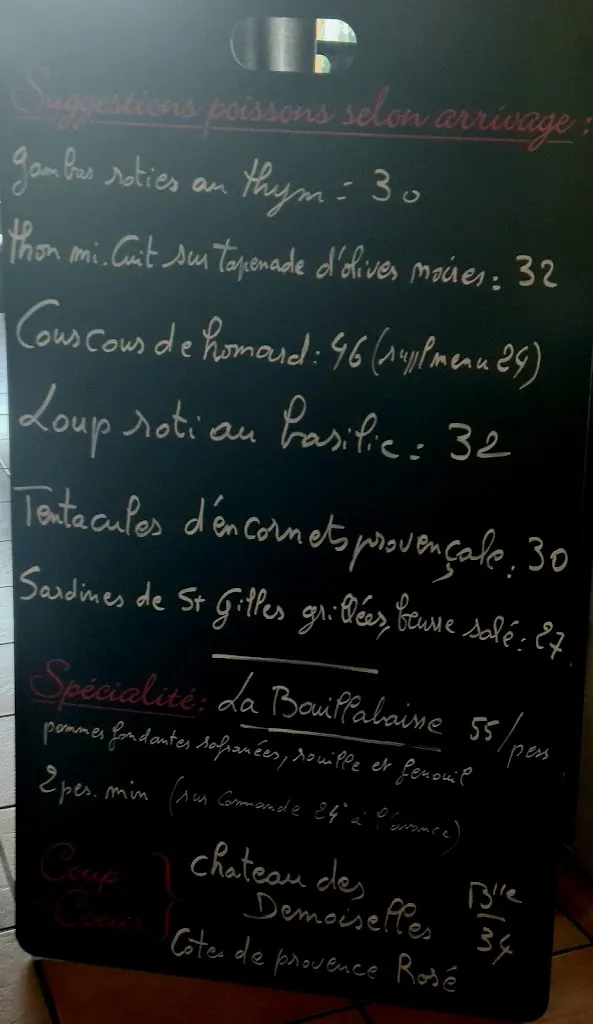 Suggestions poissons selon arrivage :
gambas roties au thym = 30
thon mi. Cuit sur Tapenade d'olives noires = 32
Couscous de homard : 46 (suppl menu 24)
Loup roti au basilic = 32
Tentacules d'éncornets provençale : 30
Sardines de St Gilles grillées, beurre salé : 27
Spécialité : La Bouillabaisse 55/pers
pommes fondantes safranées, rouille et fenouil
2 pers. min (sur Commande 24h à l'avance)
Coup Coeur } chateau des Demoiselles
Blle 34
Cotes de provence Rosé